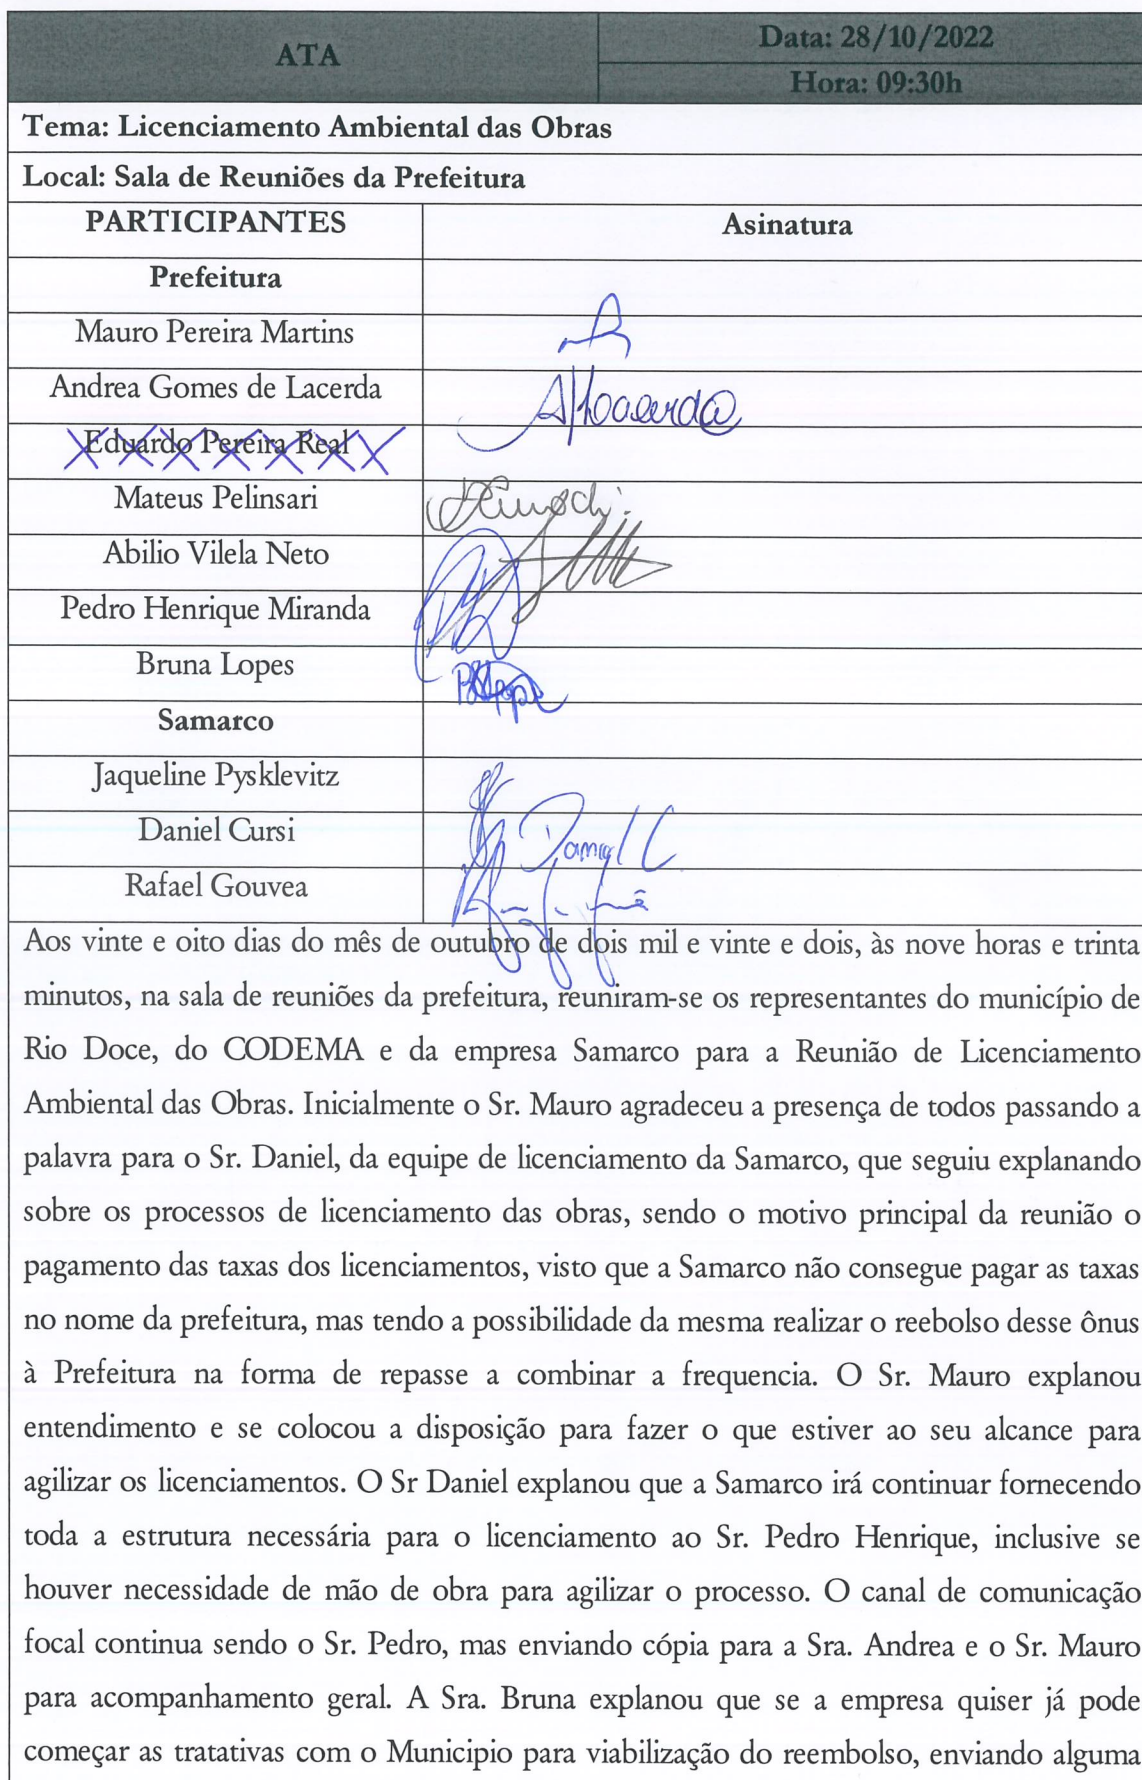 ATA
Data: 28/10/2022
Hora: 09:30h
Tema: Licenciamento Ambiental das Obras
Local: Sala de Reuniões da Prefeitura
PARTICIPANTES
Asinatura
Prefeitura
Mauro Pereira Martins
Andrea Gomes de Lacerda
Eduardo Pereira Real
Mateus Pelinsari
Abilio Vilela Neto
Pedro Henrique Miranda
Bruna Lopes
Samarco
Jaqueline Pysklevitz
Daniel Cursi
Daniel C
Rafael Gouvea
Aos vinte e oito dias do mês de outubro de dois mil e vinte e dois, às nove horas e trinta
minutos, na sala de reuniões da prefeitura, reuniram-se os representantes do município de
Rio Doce, do CODEMA e da empresa Samarco para a Reunião de Licenciamento
Ambiental das Obras. Inicialmente o Sr. Mauro agradeceu a presença de todos passando a
palavra para o Sr. Daniel, da equipe de licenciamento da Samarco, que seguiu explanando
sobre os processos de licenciamento das obras, sendo o motivo principal da reunião o
pagamento das taxas dos licenciamentos, visto que a Samarco não consegue pagar as taxas
no nome da prefeitura, mas tendo a possibilidade da mesma realizar o reebolso desse ônus
à Prefeitura na forma de repasse a combinar a frequencia. O Sr. Mauro explanou
entendimento e se colocou a disposição para fazer o que estiver ao seu alcance para
agilizar os licenciamentos. O Sr Daniel explanou que a Samarco irá continuar fornecendo
toda a estrutura necessária para o licenciamento ao Sr. Pedro Henrique, inclusive se
houver necessidade de mão de obra para agilizar o processo. O canal de comunicação
focal continua sendo o Sr. Pedro, mas enviando cópia para a Sra. Andrea e o Sr. Mauro
para acompanhamento geral. A Sra. Bruna explanou que se a empresa quiser já pode
começar as tratativas com o Municipio para viabilização do reembolso, enviando alguma